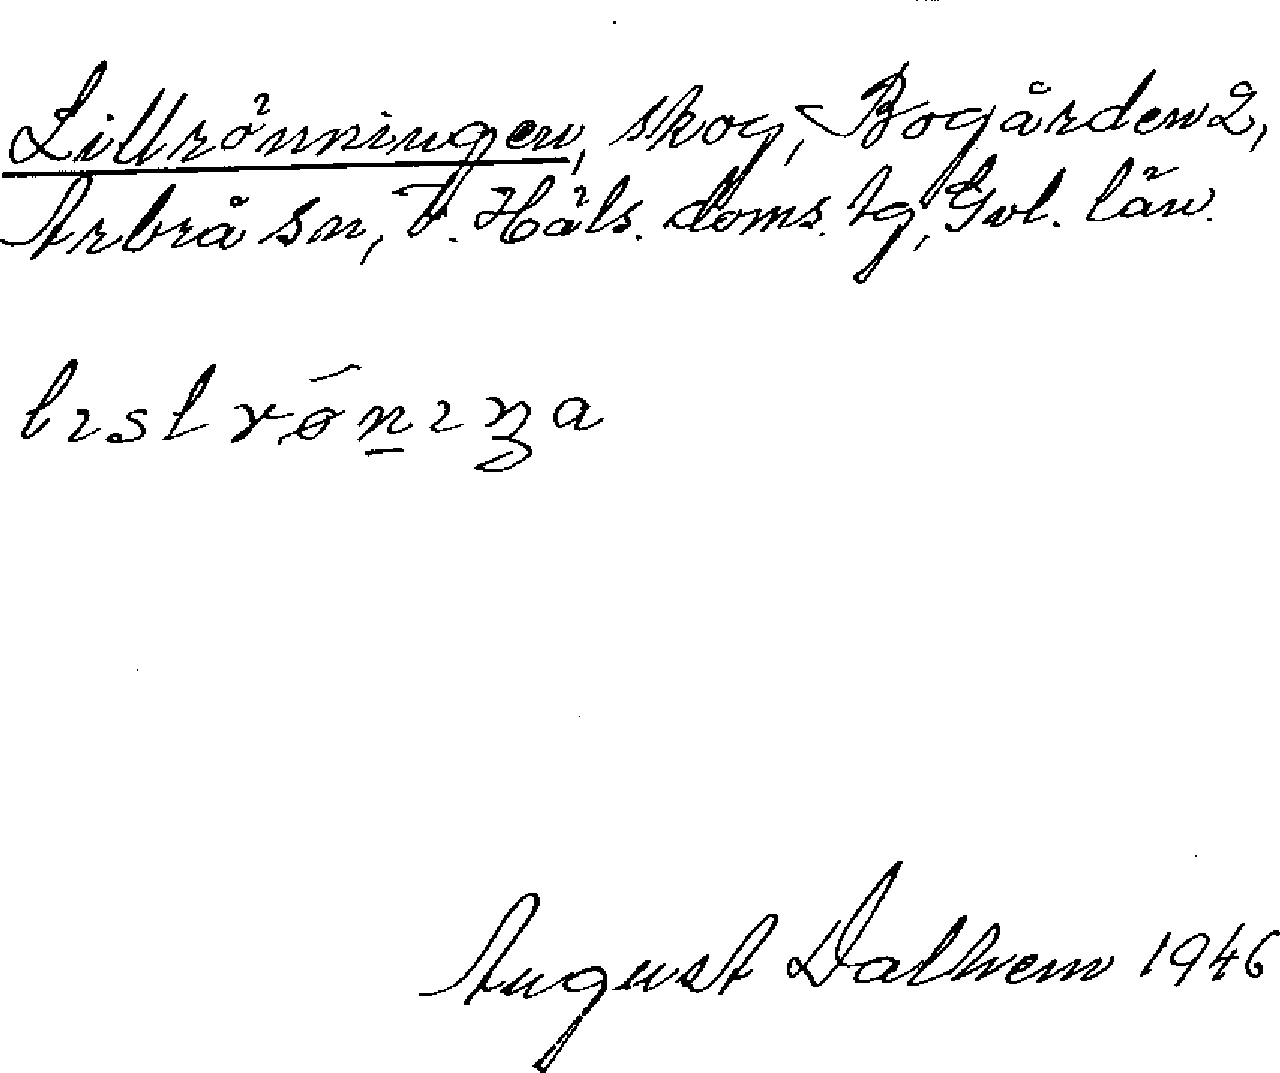 Lillrönningen, skog, Bogården 2,
Arbrå sn, V. Häls. doms. tg, Gvl. län.
August Dalhem 1946